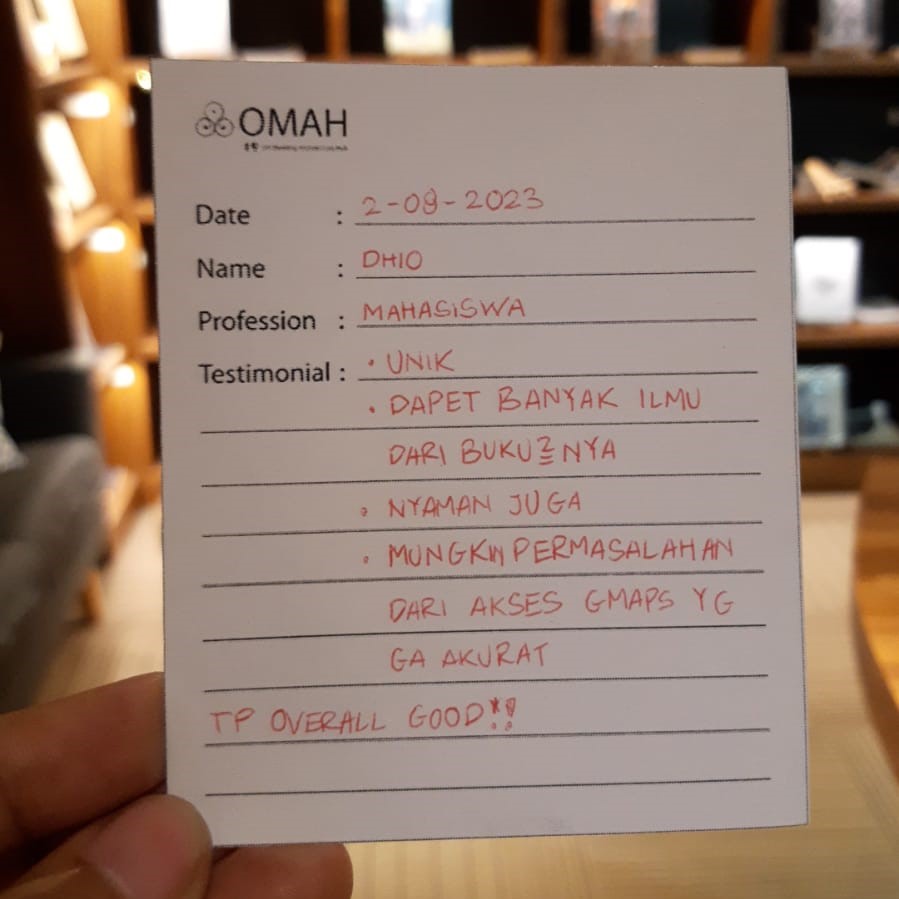 OMAH
Date : 2-08-2023
Name : DHIO
Profession : MAHASISWA
Testimonial : • UNIK
• DAPET BANYAK ILMU
DARI BUKU2NYA
• NYAMAN JUGA
• MUNGKIN PERMASALAHAN
DARI AKSES GMAPS YG
GA AKURAT
TP OVERALL GOOD!!